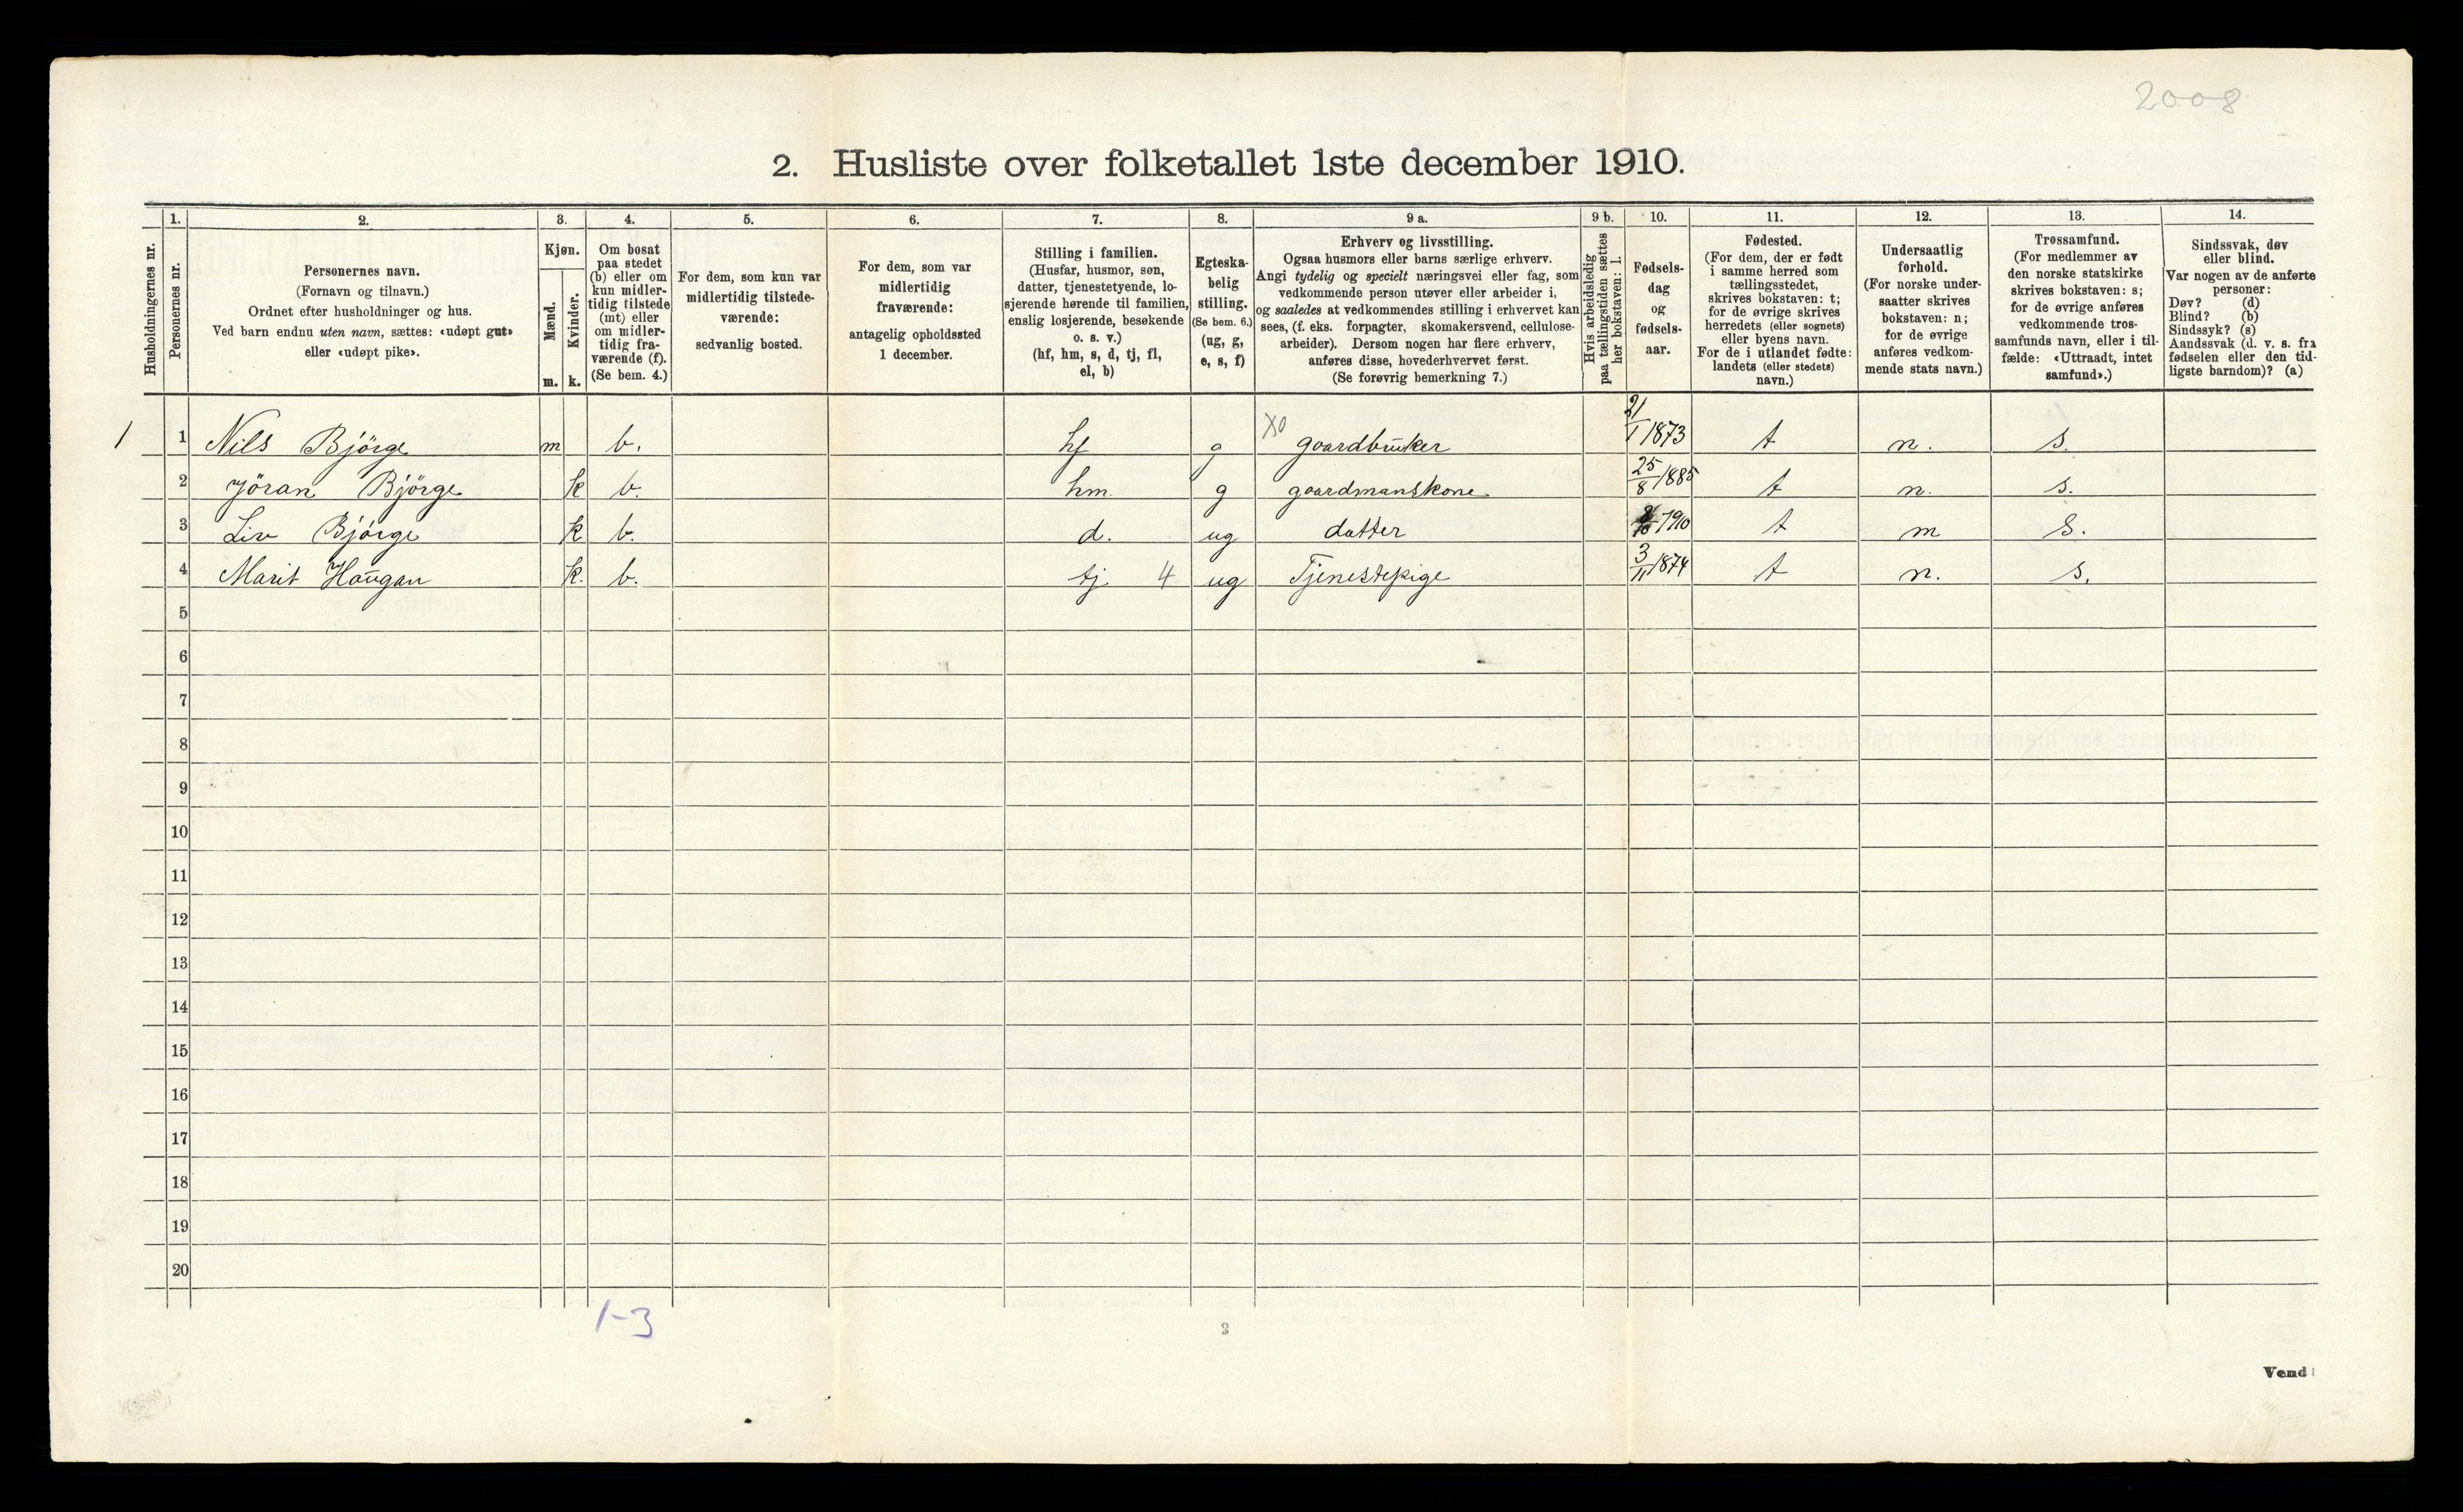 2008
2. Husliste over folketallet 1ste december 1910.
Husholdningernes nr.
1.
Personernes nr.
2.
Personernes navn.
(Fornavn og tilnavn.)
Ordnet efter husholdninger og hus.
Ved barn endnu uten navn, sættes: «udøpt gut»
eller «udøpt pike».
3.
Kjøn.
Mænd.
m.
Kvinder.
k.
4.
Om bosat
paa stedet
(b) eller om
kun midler-
tidig tilstede
(mt) eller
om midler-
tidig fra-
værende (f).
(Se bem. 4.)
5.
For dem, som kun var
midlertidig tilstede-
værende:
sedvanlig bosted.
6.
For dem, som var
midlertidig
fraværende:
antagelig opholdssted
1 december.
7.
Stilling i familien.
(Husfar, husmor, søn,
datter, tjenestetyende, lo-
sjerende hørende til familien,
enslig losjerende, besøkende
o. s. v.)
(hf, hm, s, d, tj, fl,
el, b)
8.
Egteska-
belig
stilling.
(Se bem. 6.)
(ug, g,
e, s, f)
9 a.
Erhverv og livsstilling.
Ogsaa husmors eller barns særlige erhverv.
Angi tydelig og specielt næringsvei eller fag, som
vedkommende person utøver eller arbeider i,
og saaledes at vedkommendes stilling i erhvervet kan
sees, (f. eks. forpagter, skomakersvend, cellulose-
arbeider). Dersom nogen har flere erhverv,
anføres disse, hovederhvervet først.
(Se forøvrig bemerkning 7.)
9 b.
Hvis arbeidsledig
paa tællingstiden sættes
her bokstaven: l.
10.
Fødsels-
dag
og
fødsels-
aar.
11.
Fødested.
(For dem, der er født
i samme herred som
tællingsstedet,
skrives bokstaven: t;
for de øvrige skrives
herredets (eller sognets)
eller byens navn.
For de i utlandet fødte:
landets (eller stedets)
navn.)
12.
Undersaatlig
forhold.
(For norske under-
saatter skrives
bokstaven: n;
for de øvrige
anføres vedkom-
mende stats navn.)
13.
Trossamfund.
(For medlemmer av
den norske statskirke
skrives bokstaven: s;
for de øvrige anføres
vedkommende tros-
samfunds navn, eller i til-
fælde: «Uttraadt, intet
samfund».)
14.
Sindssvak, døv
eller blind.
Var nogen av de anførte
personer:
Døv? (d)
Blind? (b)
Sindssyk? (s)
Aandssvak (d. v. s. fra
fødselen eller den tid-
ligste barndom)? (a)
1 1 Nils Bjørge m b. hf g X0 gaardbruker 21/1 1873 t n. s.
2 Jöran Bjørge k b. hm. g gaardmanskone 25/8 1885 t n. s.
3 Liv Bjørge k b. d. ug datter /10 1910 t m s.
4 Marit Haugan k. b. tj. 4 ug Tjenestepige 3/11 1874 t n. s.
5
6
7
8
9
10
11
12
13
14
15
16
17
18
19
20
1-3
2
Vend